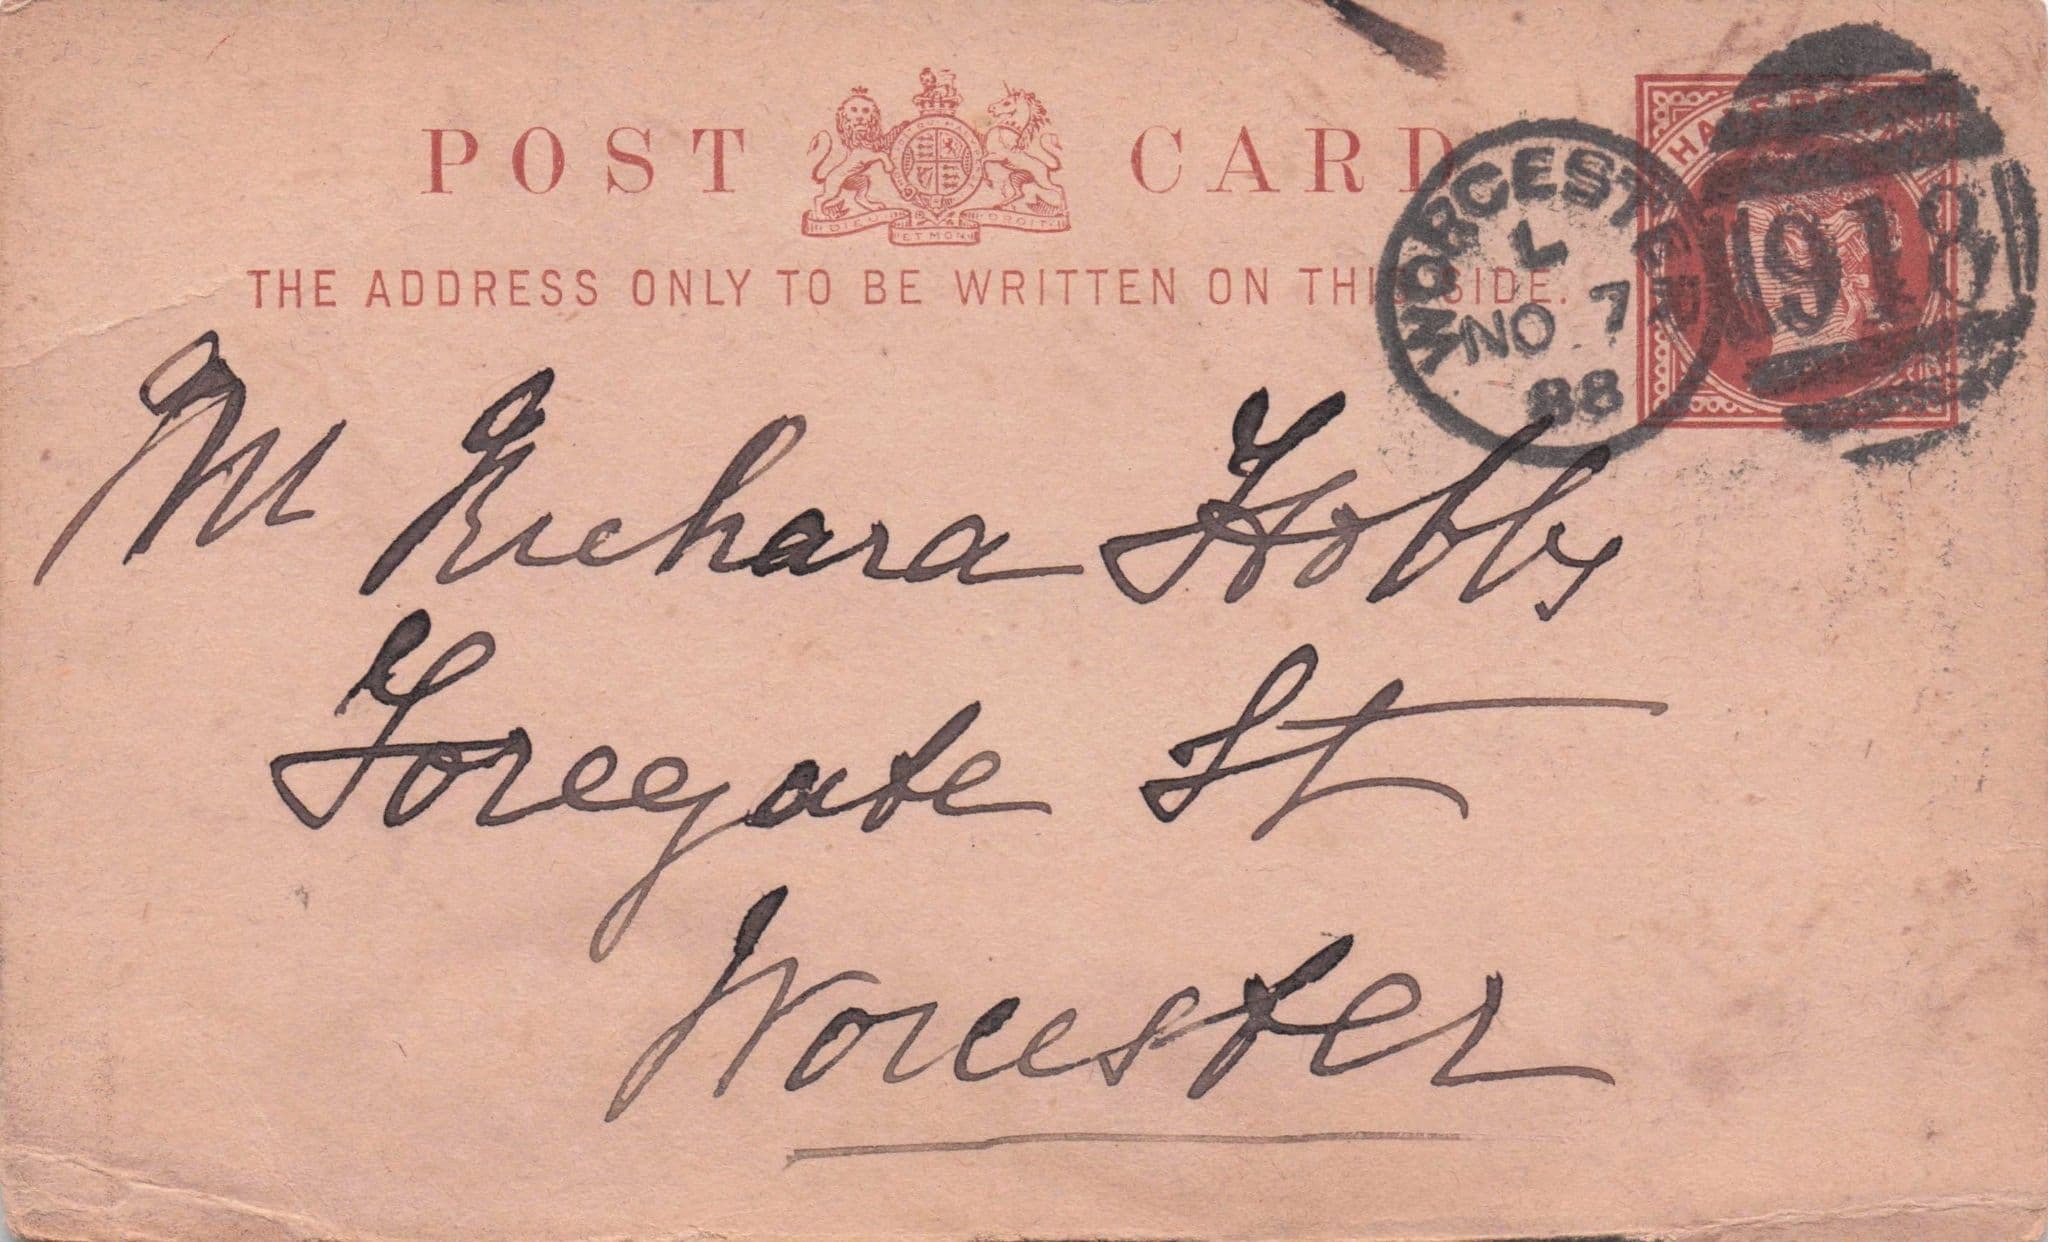 POST CARD
DIEU ET MON DROIT
THE ADDRESS ONLY TO BE WRITTEN ON THIS SIDE.
WORCESTER
L
NO 7
88
918
Mr Richard Hobbs
Foregate St
Worcester